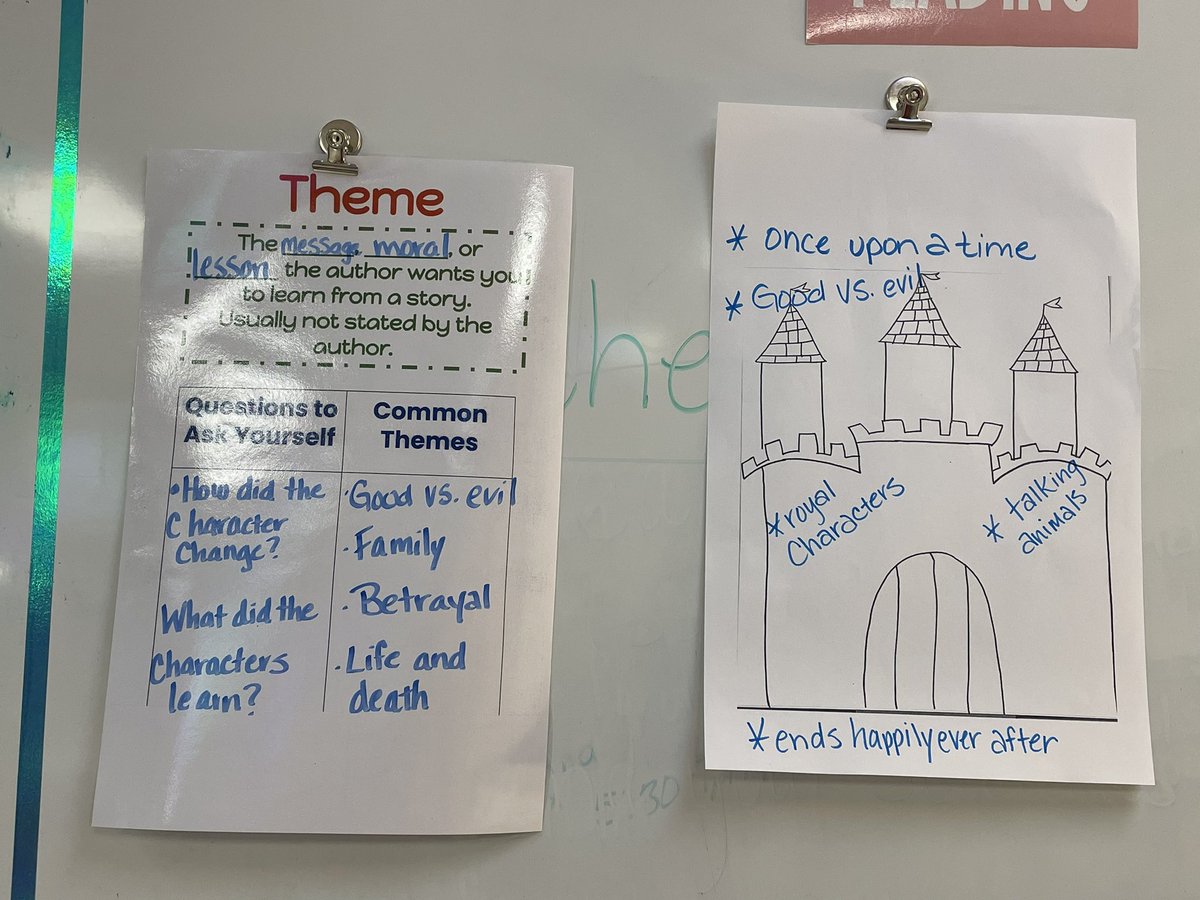 READING
Theme
The message, moral, or
lesson the author wants you
to learn from a story.
Usually not stated by the
author.
Questions to
Ask Yourself
• How did the
Character
Change?
What did the
Characters
learn?
Common
Themes
· Good vs. evil
· Family
· Betrayal
· Life and
death
he
* once upon a time
* Good vs. evil
* royal
Characters
* talking
animals
* ends happily ever after
:30